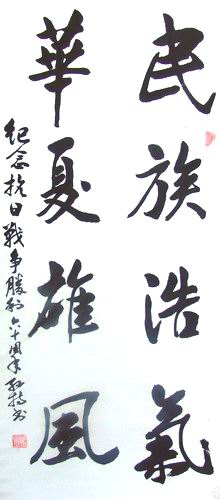 民族浩氣
華夏雄風
紀念抗日戰爭勝利六十周年